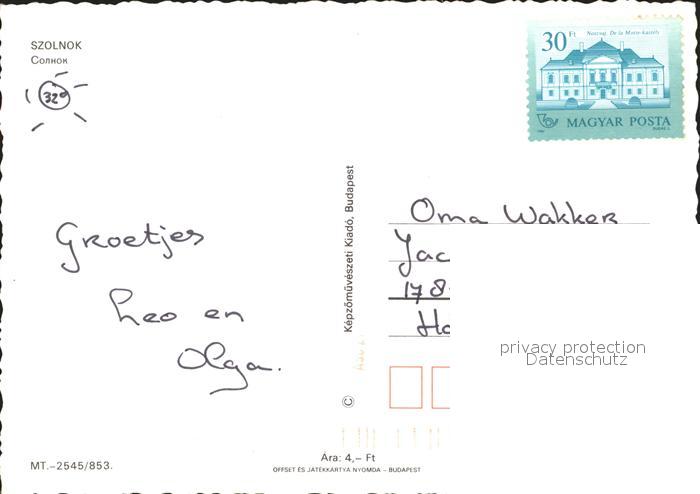 SZOLNOK
Солнок
32°
30 Ft
Noszvaj. De la Motte-kastély
MAGYAR POSTA
Képzőművészeti Kiadó, Budapest
©
Groetjes
Leo en
Olga.
Oma Wakker
Jac
178
Ho
privacy protection
Datenschutz
MT.–2545/853.
Ára: 4,– Ft
OFFSET ÉS JÁTÉKKÁRTYA NYOMDA – BUDAPEST